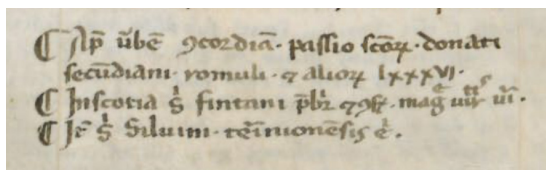 ¶ Ap̄ ur̄bē ꝯcordiā· passio scōꝝ· donati
secūdiani· romuli· ⁊ alioꝝ lxxxvi·
¶ In scotia s̄ fintani p̄br̄i ⁊ ꝯf̄· maḡ
¶ Itē s̄ siluini· ter̄uuonēsis ē̄·